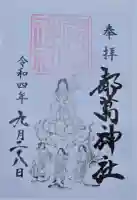 奉拝
都萬神社
令和四年九月二八日